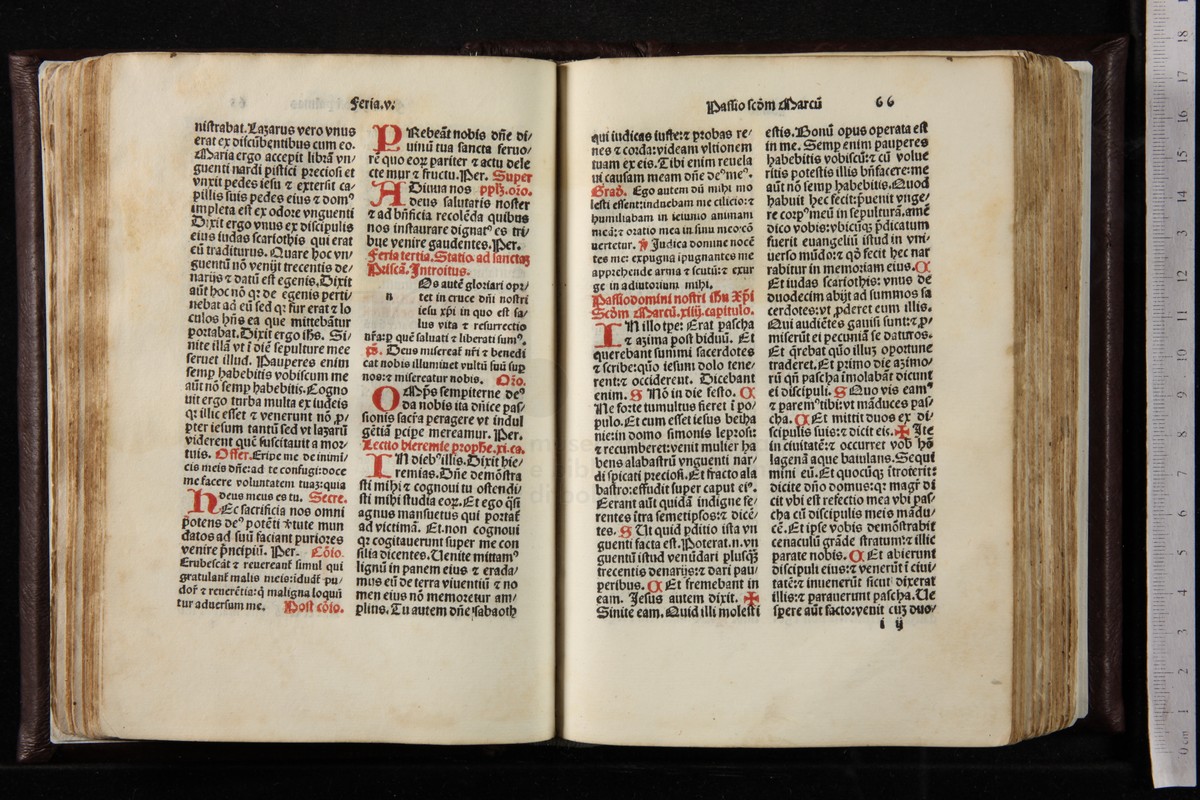 Feria.v.
nistrabat. Lazarus vero vnus
erat ex discūbentibus cum eo.
Maria ergo accepit librā vn/
guenti nardi pistici preciosi et
vnxit pedes iesu ⁊ extersit ca/
pillis suis pedes eius ⁊ domꝰ
impleta est ex odore vnguenti
Dixit ergo vnus ex discipulis
eius iudas scariothis qui erat
eū traditurus. Quare hoc vn/
guentū nō venijt trecentis de/
narijs ⁊ datū est egenis. Dixit
aūt hoc nō q: de egenis perti/
nebat ad eū sed q: fur erat ⁊ lo
culos hñs ea que mittebātur
portabat. Dixit ergo ihs. Si/
nite illā vt ī diē sepulture mee
seruet illud. Pauperes enim
semp habebitis vobiscum me
aūt nō semp habebitis. Cogno
uit ergo turba multa ex iudeis
q: illic esset ⁊ venerunt nō ꝓ/
pter iesum tantū sed vt lazarū
viderent quē suscitauit a mor/
tuis. Offer. Eripe me de inimi/
cis meis dñe: ad te confugi: doce
me facere voluntatem tuaʒ: quia
deus meus es tu. Secre.
HEc sacrificia nos omni
potens deꝰ potēti ꝟtute mun
datos ad suū faciant puriores
venire p̄ncipiū. Per. Cōio.
Erubescāt ⁊ reuereanṫ simul qui
gratulanṫ malis meis: iduāṫ pu/
dor ⁊ reuerētia: q̄ maligna loquūṫ
tur aduersum me. Post cōio.
PRebeāt nobis dñe di/
uinū tua sancta feruo/
rē quo eoꝝ pariter ⁊ actu dele
ctemur ⁊ fructu. Per. Super
ADiuua nos pplʒ. oro.
deus salutaris noster
⁊ ad bñficia recolēda quibus
nos instaurare dignatꝰ es tri/
bue venire gaudentes. Per.
Feria tertia. Statio ad sanctaʒ
Priscā. Introitus.
n
Os autē gloriari opor/
tet in cruce dñi nostri
iesu xp̄i in quo est sa/
lus vita ⁊ resurrectio
nr̄a: p quē saluati ⁊ liberati sumꝰ.
ps. Deus misereaṫ nr̄i ⁊ benedi
cat nobis illuminet vultū suū sup
nos: ⁊ misereatur nobis. Oro.
OMp̄s sempiterne deꝰ
da nobis ita dñice pas/
sionis sacr̄a peragere vt indul
gētiā pcipe mereamur. Per.
Lectio hieremie prophe. xi. ca.
IN diebꝰ illis. Dixit hie/
remias. Dñe demōstra
sti mihi ⁊ cognoui tu ostendi/
sti mihi studia eoꝝ. Et ego q̄si
agnus mansuetus qui portaṫ
ad victimā. Et. non cognoui
q: cogitauerunt super me con
silia dicentes. Uenite mittamꝰ
lignū in panem eius ⁊ erada/
mus eū de terra viuentiū ⁊ no
men eius nō memoretur am/
plius. Tu autem dñe sabaoth
Passio scōm Marcū 66
qui iudicas iuste: ⁊ probas re/
nes ⁊ corda: videam vltionem
tuam ex eis. Tibi enim reuela
ui causam meam dñe deꝰ meꝰ.
Grad. Ego autem dū mihi mo
lesti essent: induebam me cilicio: ⁊
humiliabam in ieiunio animam
meā: ⁊ oratio mea in sinu meo cō
uertetur. ℣ Judica domine nocē
tes me: expugna ipugnantes me
apprehende arma ⁊ scutū: ⁊ exur
ge in adiutorium mihi.
Passio domini nostri ihu Xp̄i
Scōm Marcū. xiiij. capitulo.
IN illo tp̄e: Erat pascha
⁊ azima post biduū. Et
querebant summi sacerdotes
⁊ scribe: quō iesum dolo tene/
rent: ⁊ occiderent. Dicebant
enim. S Nō in die festo. C
Ne forte tumultus fieret ī po/
pulo. Et cum esset iesus betha
nie: in domo simonis leprosi:
⁊ recumberet: venit mulier ha
bens alabastrū vnguenti nar/
di spicati preciosi. Et fracto ala
bastro: effudit super caput eiꝰ.
Eerant aūt quidā indigne fe/
rentes itra semetipsos: ⁊ dicē/
tes. S Ut quid pditio ista vn
guenti facta est. Poterat. n. vn
guentū istud venūdari plusqʒ
trecentis denarijs: ⁊ dari pau/
peribus. C Et fremebant in
eam. Jesus autem dixit. ✠
Sinite eam. Quid illi molesti
estis. Bonū opus operata est
in me. Semp enim pauperes
habebitis vobiscū: ⁊ cū volue
ritis potestis illis bñfacere: me
aūt nō semp habebitis. Quod
habuit hec fecit: p̄uenit vnge/
re corpꝰ meū in sepulturā. amē
dico vobis: vbicūqʒ p̄dicatum
fuerit euangeliū istud in vni/
uerso mūdo: ⁊ qd̄ fecit hec nar
rabitur in memoriam eius. C
Et iudas scariothis: vnus de
duodecim abijt ad summos sa
cerdotes: vt ꝓderet eum illis.
Qui audiētes gauisi sunt: ⁊ ꝓ/
miserūt ei pecuniā se daturos.
Et q̄rebat quō illuʒ oportune
traderet. Et primo die azimo/
rū qn̄ pascha īmolabāt dicunt
ei discipuli. S Quo vis eamꝰ
⁊ paremꝰ tibi: vt māduces pas/
cha. C Et mittit duos ex di/
scipulis suis: ⁊ dicit eis. ✠ Ite
in ciuitatē: ⁊ occurret vob hō
lagenā aque baiulans. Sequi
mini eū. Et quocūqʒ ītroierit:
dicite dño domus: q: magr̄ di
cit vbi est refectio mea vbi pas/
cha cū discipulis meis mādu/
cē. Et ipse vobis demōstrabit
cenaculū grāde stratum: ⁊ illic
parate nobis. C Et abierunt
discipuli eius: ⁊ venerūt ī ciui/
tatē: ⁊ inuenerūt sicut dixerat
illis: ⁊ parauerunt pascha. Ue
spere aūt facto: venit cuʒ duo/
i ij